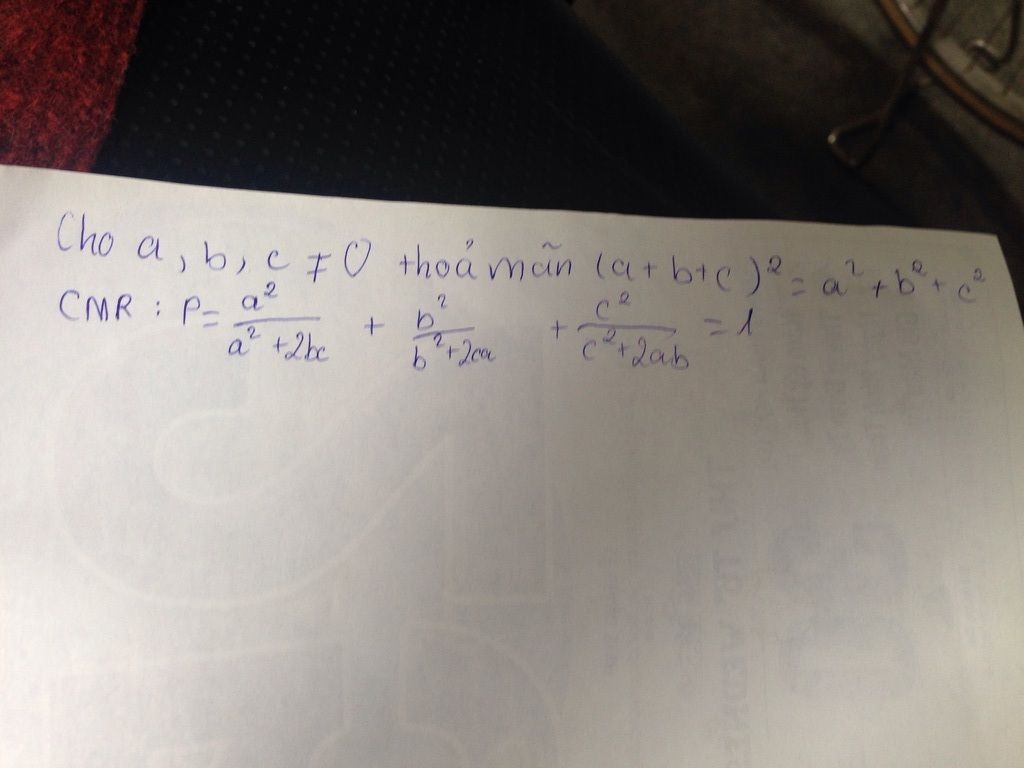 Cho a, b, c ≠ 0 thoả mãn (a+b+c)² = a² + b² + c²
CMR : P = a²/(a² + 2bc) + b²/(b² + 2ca) + c²/(c² + 2ab) = 1